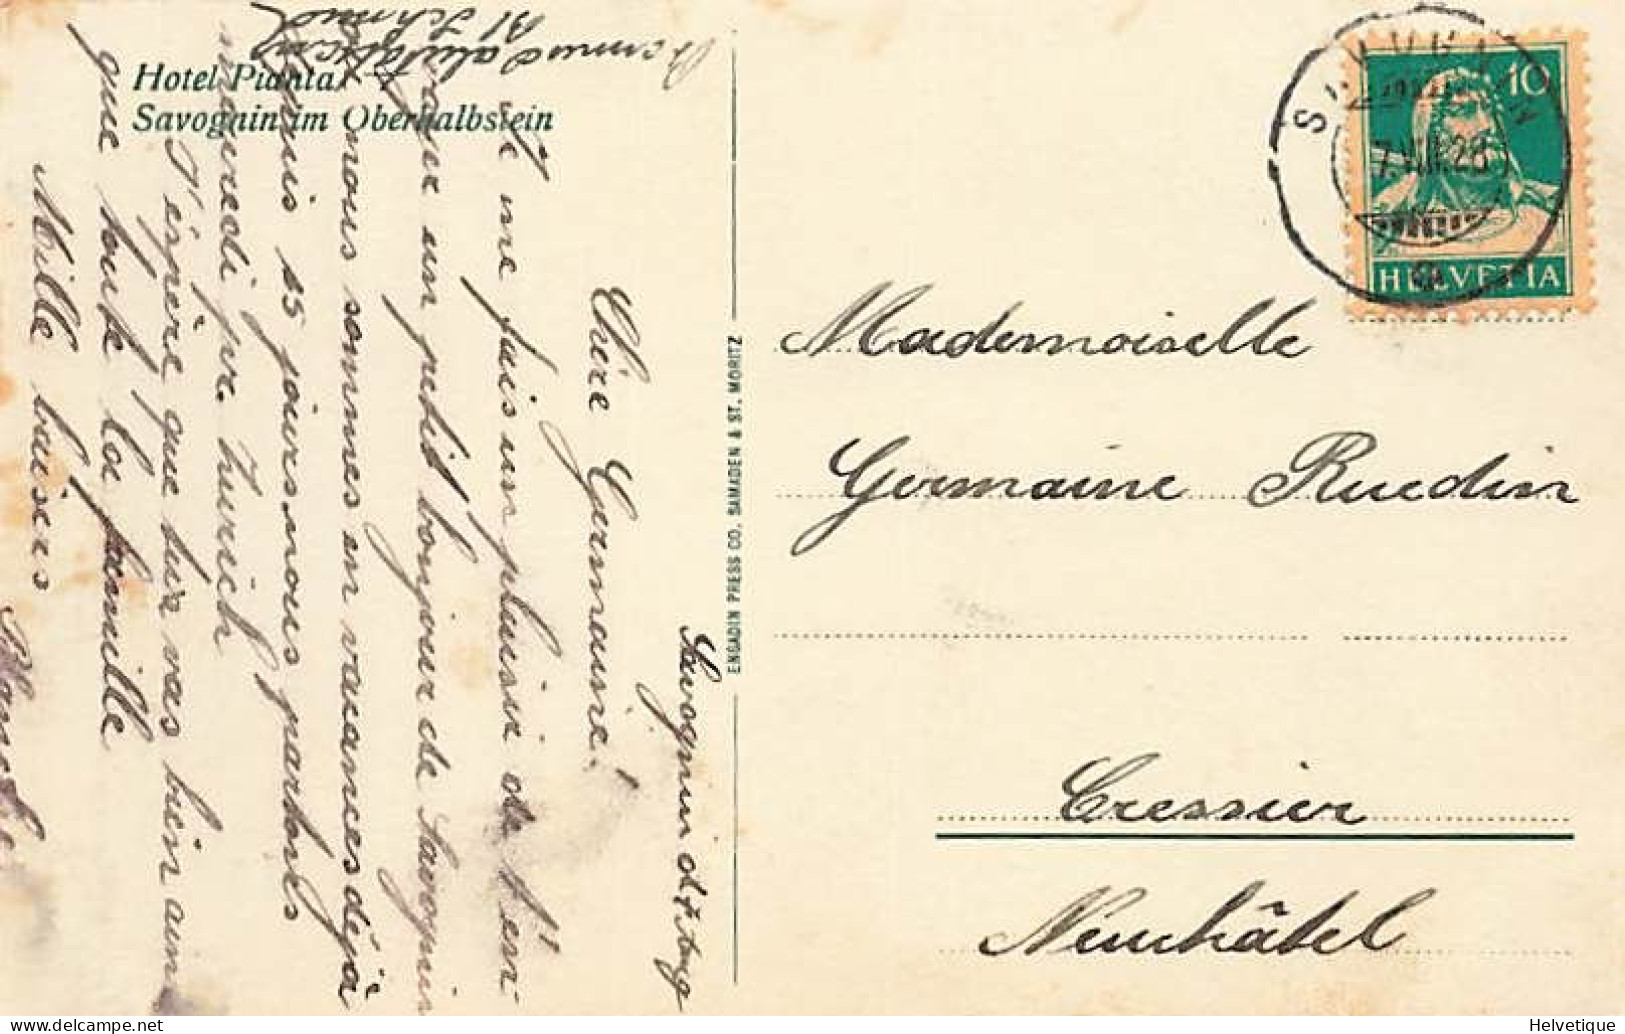 Hotel Pianta
Savognin im Oberhalbstein
Savognin d. 7 Aug
Chère Germaine!
Je me fais un plaisir de t'en-
voyer un petit bonjour de Savognin
nous sommes en vacances déjà
depuis 15 jours nous partons
mercredi pr. Zurich
J'espère que tu vas bien ainsi
que toute la famille
Mille baisers
ENGADIN PRESS CO. SAMADEN & ST. MORITZ
SAVOGNIN
7.VIII.28
10
HELVETIA
Mademoiselle
Germaine Ruedin
Cressier
Neuchâtel
www.delcampe.net
Helvetique